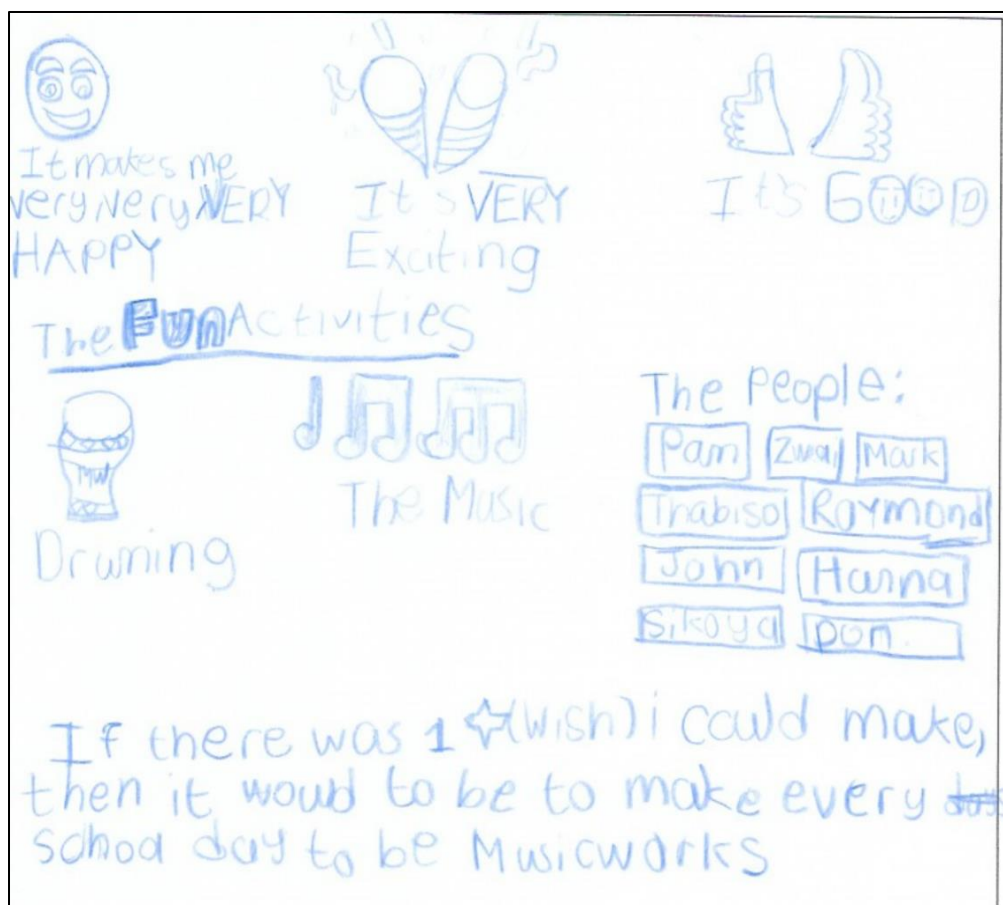 It makes me
very very VERY
HAPPY
It's VERY
Exciting
It's GOOD
The FUN Activities
MW
Druming
The Music
The People:
Pam Zwai Mark
Thabiso Raymond
John Hanna
Sikoya Don
If there was 1 (wish) i could make,
then it woud to be to make every
school day to be Musicworks